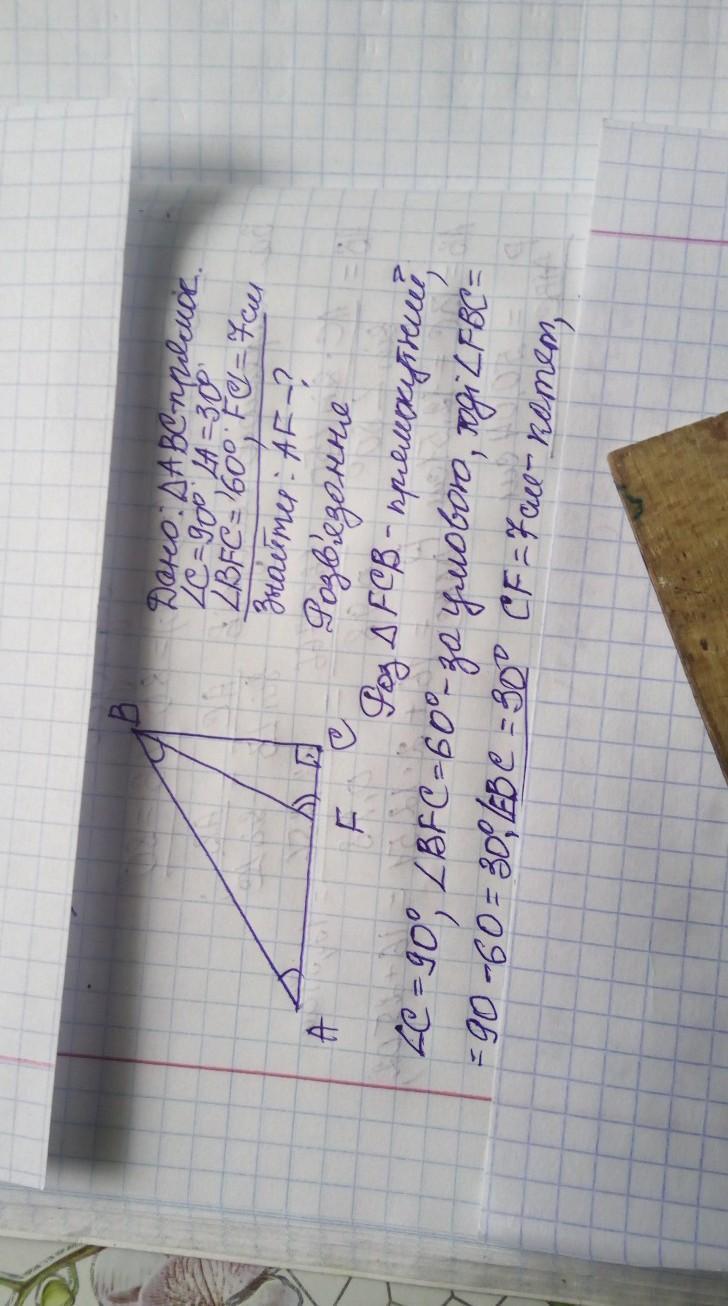 B
A
F
C
Дано: △ABC-прямок.
∠C=90° ∠A=30°.
∠BFC=60°. FC=7см
Знайти: AF-?
Розв'язання
Роз △FCB - прямокутний,
∠C=90°, ∠BFC=60°- за умовою, тоді ∠FBC=
=90-60=30°, ∠FBC=30° CF=7см- катет,